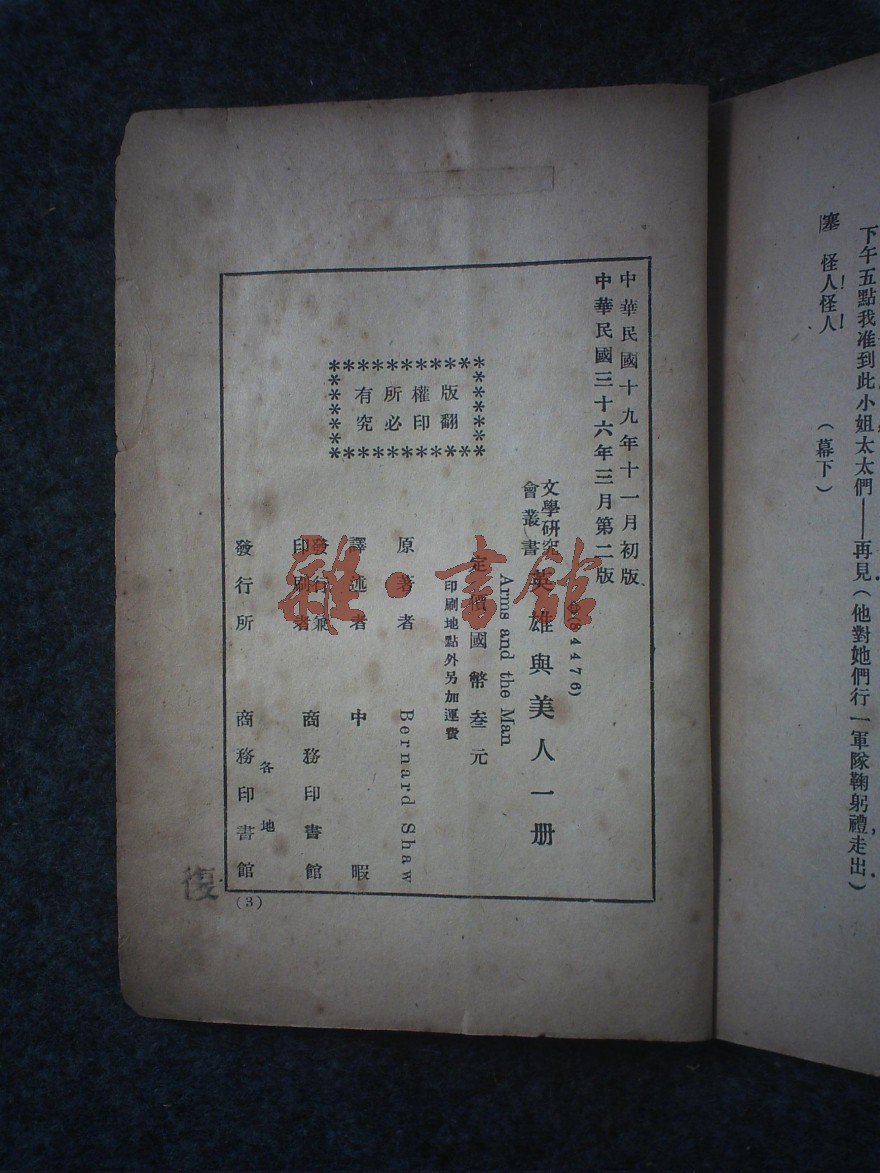 下午五點我准到此小姐太太們——再見（他對她們行一軍隊鞠躬禮走出）
塞 怪人！怪人！
（幕下）
中華民國十九年十一月初版
中華民國三十六年三月第二版
(84476)
文學研究會叢書 英雄與美人一册
Arms and the Man
定價國幣叁元
印刷地點外另加運費
版權所有
翻印必究
原著者 Bernard Shaw
譯述者 中暇
發行兼印刷者 商務印書館
各地
發行所 商務印書館
(3)
復
雜·書館